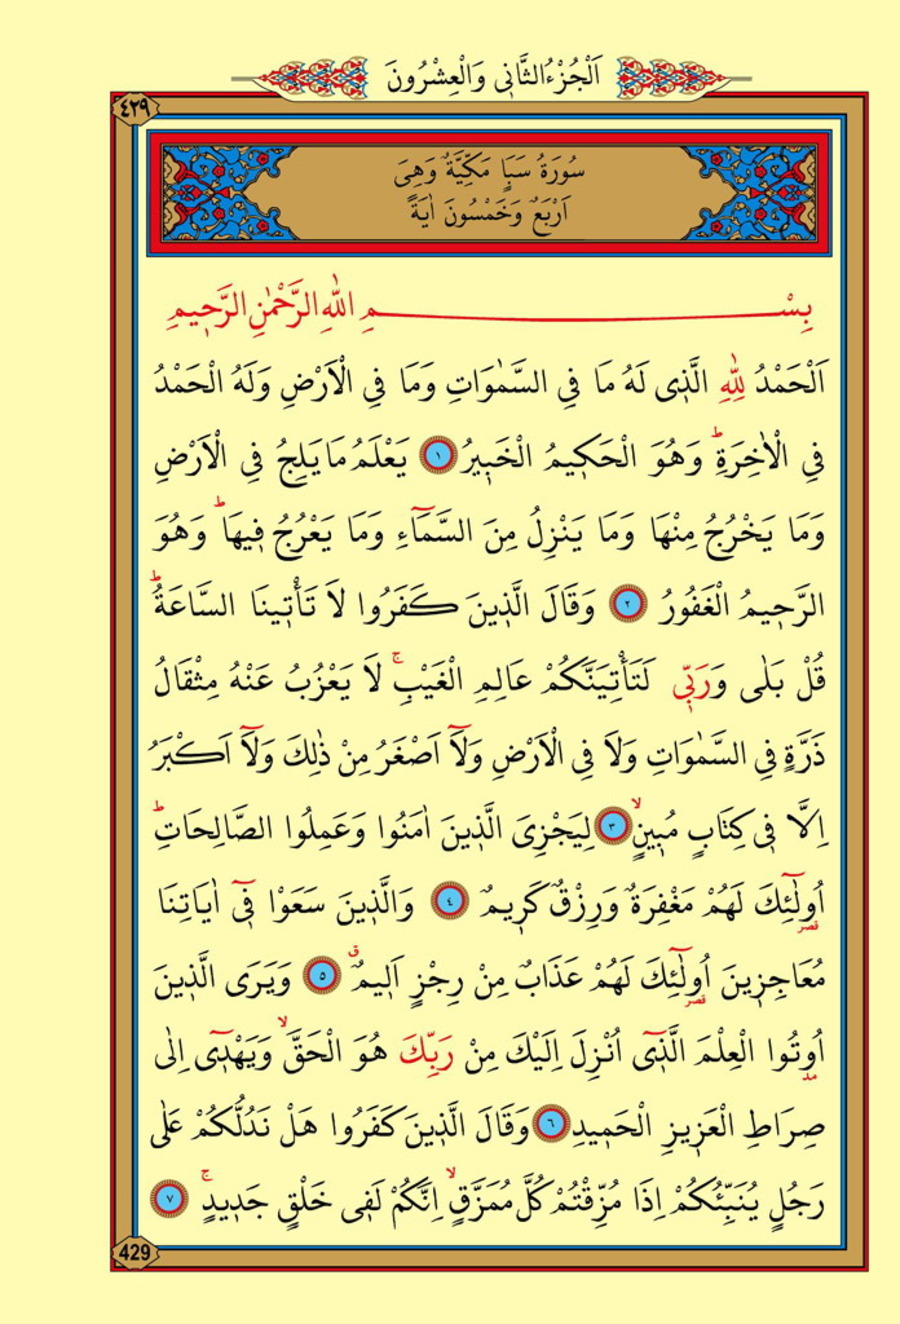 اَلْجُزْءُ الثَّانٖى وَالْعِشْرُونَ
٤٢٩
سُورَةُ سَبَاٍ مَكِّيَّةٌ وَهِىَ
اَرْبَعٌ وَخَمْسُونَ اٰيَةً
بِسْمِ اللّٰهِ الرَّحْمٰنِ الرَّحٖيمِ
اَلْحَمْدُ لِلّٰهِ الَّذٖى لَهُ مَا فِى السَّمٰوَاتِ وَمَا فِى الْاَرْضِ وَلَهُ الْحَمْدُ
فِى الْاٰخِرَةِؕ وَهُوَ الْحَكٖيمُ الْخَبٖيرُ ١ يَعْلَمُ مَا يَلِجُ فِى الْاَرْضِ
وَمَا يَخْرُجُ مِنْهَا وَمَا يَنْزِلُ مِنَ السَّمَٓاءِ وَمَا يَعْرُجُ فٖيهَاؕ وَهُوَ
الرَّحٖيمُ الْغَفُورُ ٢ وَقَالَ الَّذٖينَ كَفَرُوا لَا تَأْتٖينَا السَّاعَةُؕ
قُلْ بَلٰى وَرَبّٖى لَتَأْتِيَنَّكُمْ عَالِمِ الْغَيْبِۚ لَا يَعْزُبُ عَنْهُ مِثْقَالُ
ذَرَّةٍ فِى السَّمٰوَاتِ وَلَا فِى الْاَرْضِ وَلَٓا اَصْغَرُ مِنْ ذٰلِكَ وَلَٓا اَكْبَرُ
اِلَّا فٖى كِتَابٍ مُبٖينٍۙ ٣ لِيَجْزِىَ الَّذٖينَ اٰمَنُوا وَعَمِلُوا الصَّالِحَاتِؕ
اُولٰٓئِكَ لَهُمْ مَغْفِرَةٌ وَرِزْقٌ كَرٖيمٌ ٤ وَالَّذٖينَ سَعَوْا فٖٓى اٰيَاتِنَا
قصر
مُعَاجِزٖينَ اُولٰٓئِكَ لَهُمْ عَذَابٌ مِنْ رِجْزٍ اَلٖيمٌ ق ٥ وَيَرَى الَّذٖينَ
قصر
اُوتُوا الْعِلْمَ الَّذٖٓى اُنْزِلَ اِلَيْكَ مِنْ رَبِّكَ هُوَ الْحَقَّۙ وَيَهْدٖٓى اِلٰى
مد
صِرَاطِ الْعَزٖيزِ الْحَمٖيدِ ٦ وَقَالَ الَّذٖينَ كَفَرُوا هَلْ نَدُلُّكُمْ عَلٰى
رَجُلٍ يُنَبِّئُكُمْ اِذَا مُزِّقْتُمْ كُلَّ مُمَزَّقٍۙ اِنَّكُمْ لَفٖى خَلْقٍ جَدٖيدٍۚ ٧
429